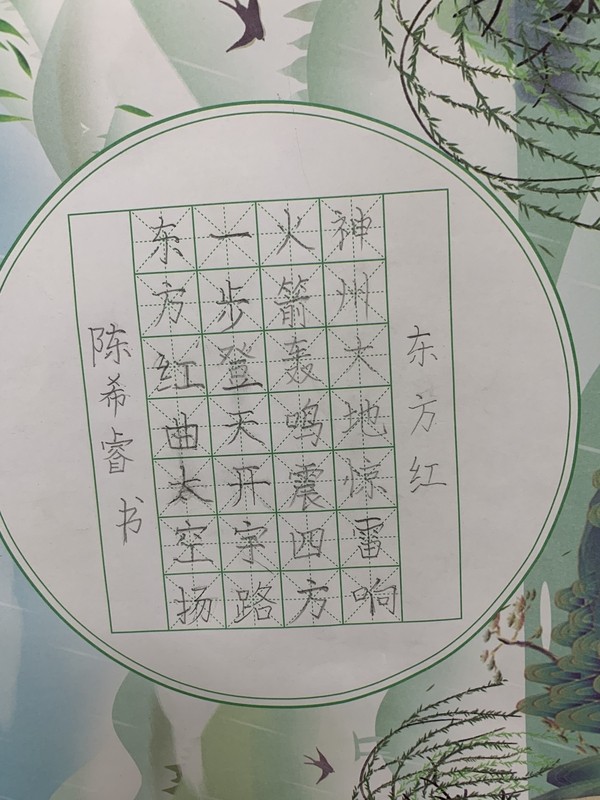 东方红
神州大地惊雷响
火箭轰鸣震四方
一步登天开宇路
东方红曲太空扬
陈希睿书